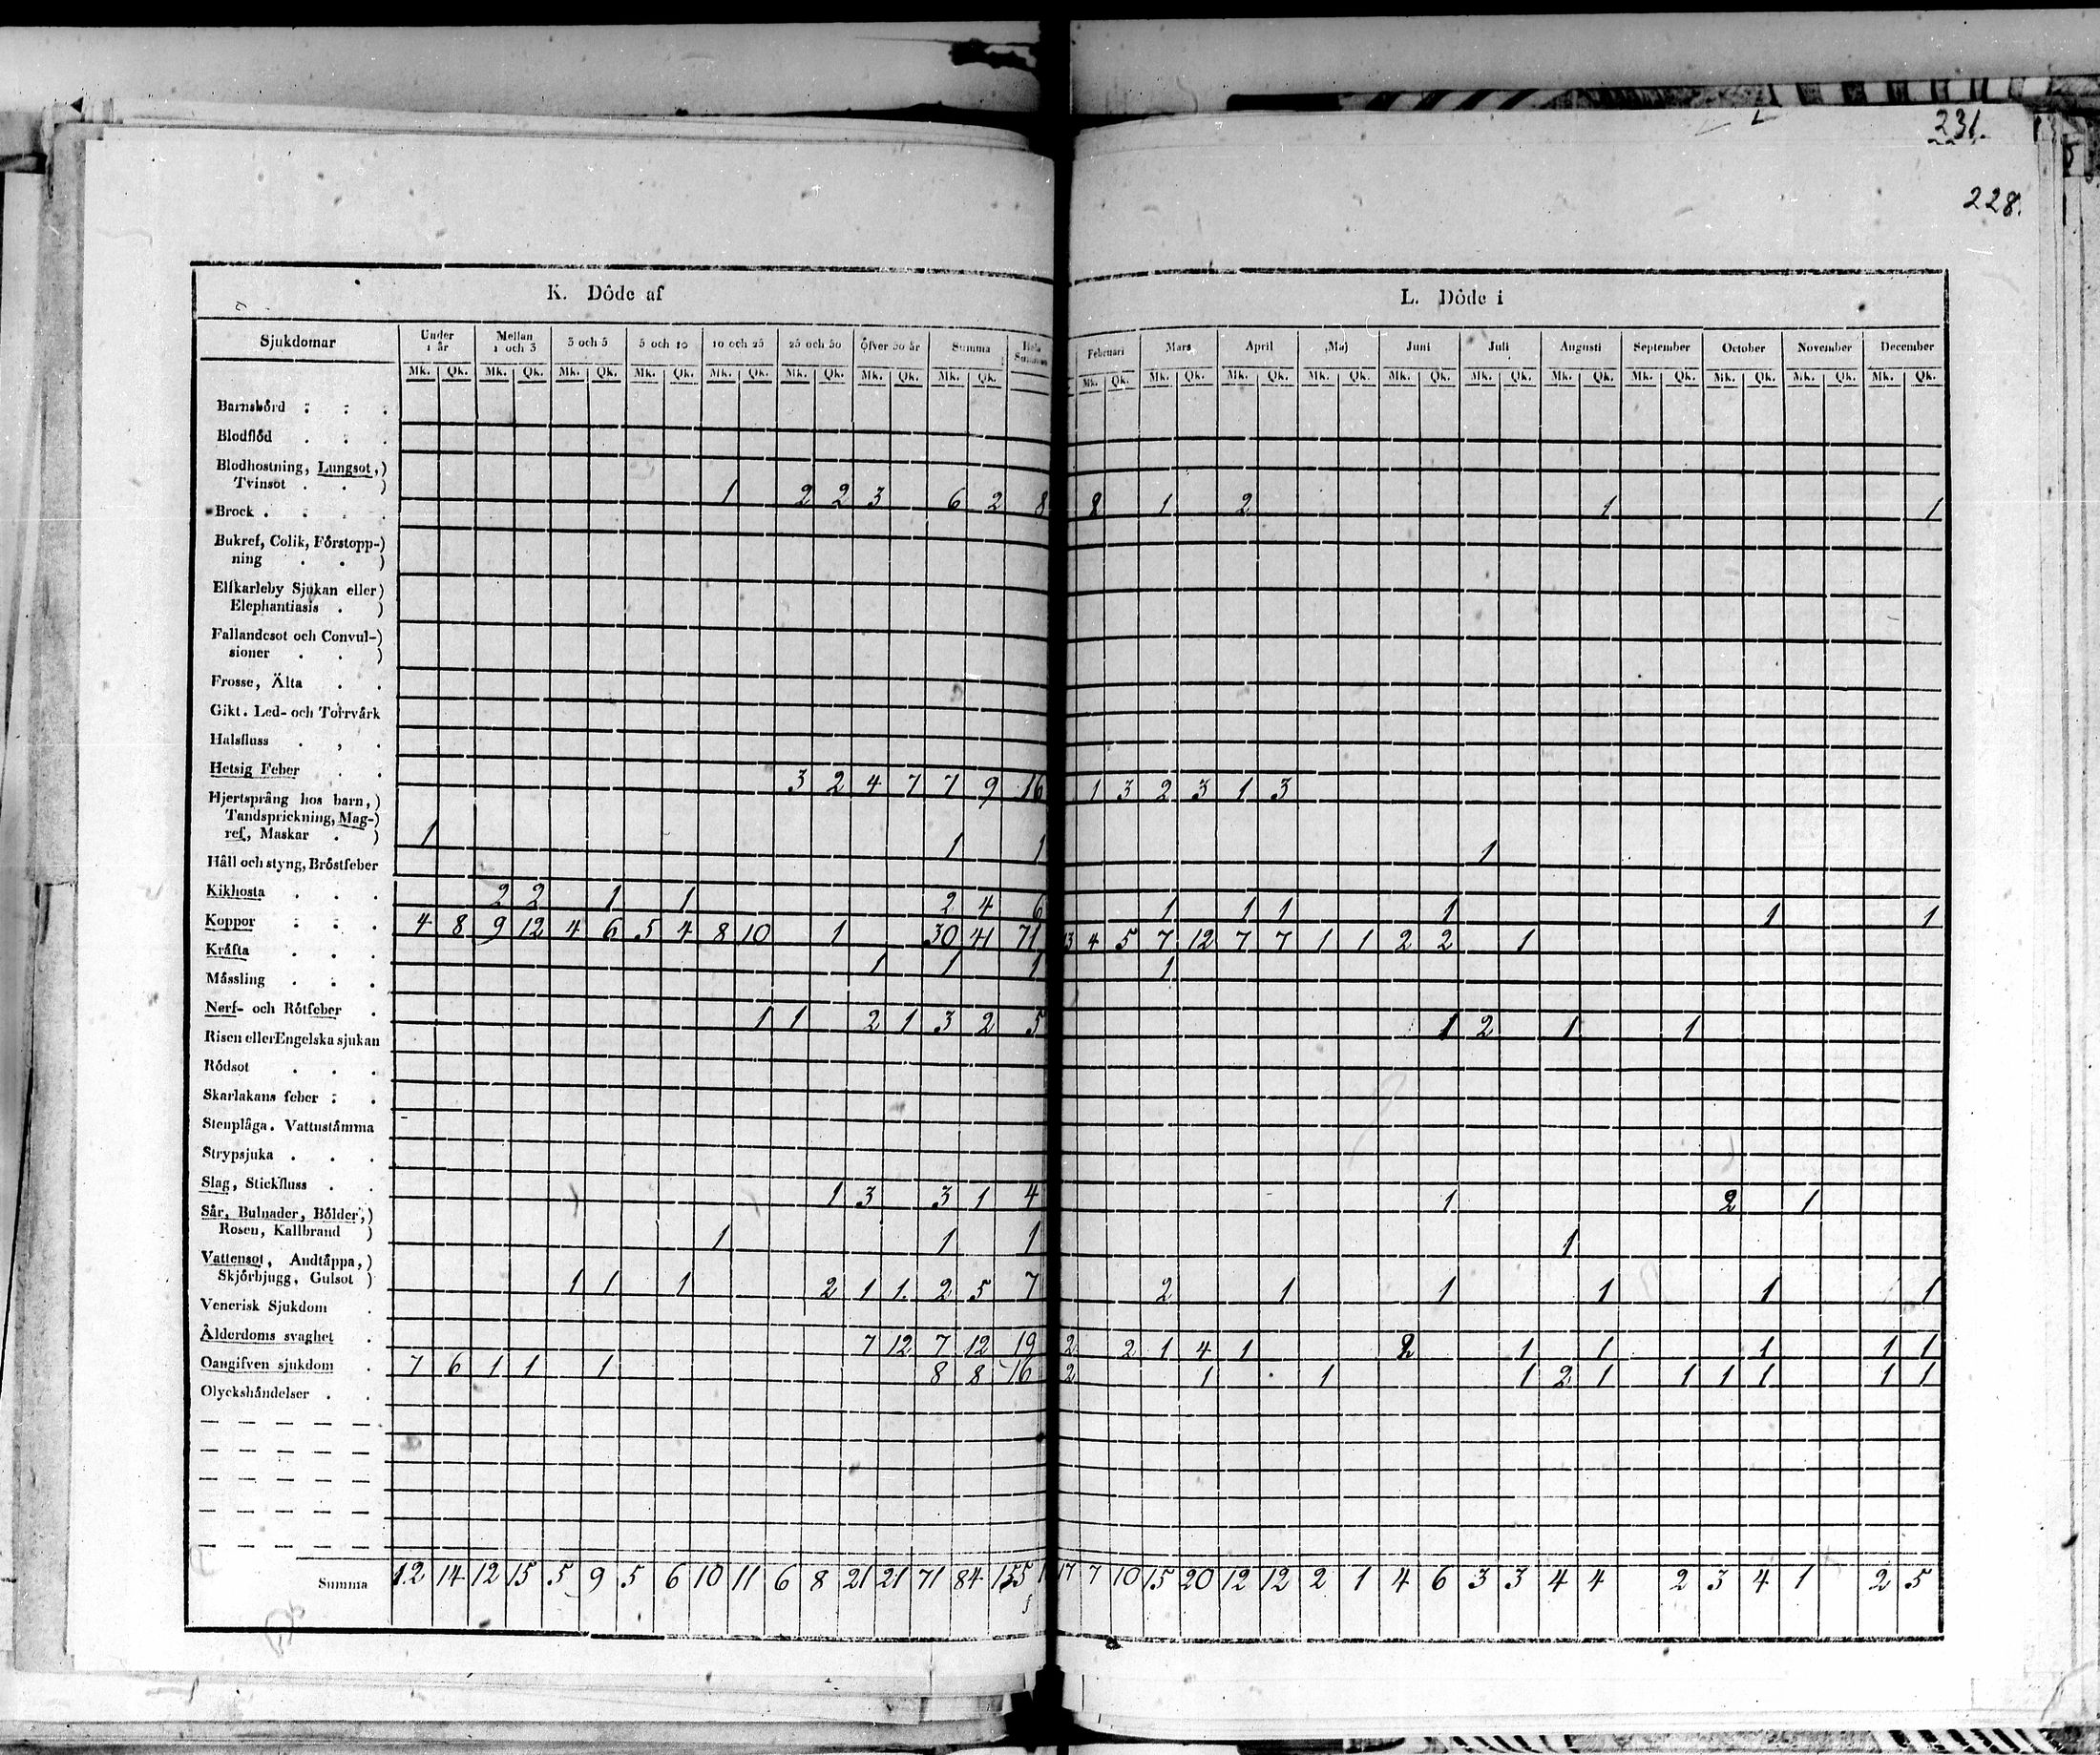 231.
228.
K. Döde af
L. Döde i
Sjukdomar Under 1 år Mellan 1 och 3 3 och 5 5 och 10 10 och 25 25 och 50 Öfver 50 år Summa Hela Summan Februari Mars April Maj Juni Juli Augusti September October November December
Mk. Qk. Mk. Qk. Mk. Qk. Mk. Qk. Mk. Qk. Mk. Qk. Mk. Qk. Mk. Qk. Mk. Qk. Mk. Qk. Mk. Qk. Mk. Qk. Mk. Qk. Mk. Qk. Mk. Qk. Mk. Qk. Mk. Qk. Mk. Qk. Mk. Qk.
Barnsbörd
Blodflöd
Blodhostning, Lungsot,)
Tvinsot . . ) 1 2 2 3 6 2 8 2 1 2 1 1
Brock . . . .
Bukref, Colik, Förstopp-)
ning . . )
Elfkarleby Sjukan eller)
Elephantiasis . )
Fallandesot och Convul-)
sioner . . )
Frosse, Älta . .
Gikt. Led- och Torrvärk
Halsfluss . , .
Hetsig Feber . . 3 2 4 7 7 9 16 1 3 2 3 1 3
Hjertsprång hos barn,)
Tandsprickning, Mag-)
ref, Maskar . ) 1 1 1 1
Håll och styng, Bröstfeber
Kikhosta . . . 2 2 1 1 2 4 6 1 1 1 1 1 1
Koppor . . . 4 8 9 12 4 6 5 4 8 10 1 30 41 71 13 4 5 7 12 7 7 1 1 2 2 1
Kräfta . . . 1 1 1 1
Mässling . . .
Nerf- och Rötfeber . 1 1 2 1 3 2 5 1 2 1 1
Risen eller Engelska sjukan
Rödsot . . .
Skarlakans feber : .
Stenplåga. Vattustämma
Strypsjuka . . .
Slag, Stickfluss . . 1 3 3 1 4 1 2 1
Sår, Bulnader, Bölder,)
Rosen, Kallbrand ) 1 1 1 1
Vattensot, Andtäppa,)
Skjörbjugg, Gulsot ) 1 1 1 2 1 1. 2 5 7 2 1 1 1 1 1
Venerisk Sjukdom .
Ålderdoms svaghet . 7 12 7 12 19 2 2 1 4 1 2 1 1 1 1 1
Oangifven sjukdom . 7 6 1 1 1 8 8 16 2 1 1 1 2 1 1 1 1 1 1
Olyckshändelser . .
Summa 12 14 12 15 5 9 5 6 10 11 6 8 21 21 71 84 155 17 7 10 15 20 12 12 2 1 4 6 3 3 4 4 2 3 4 1 2 5